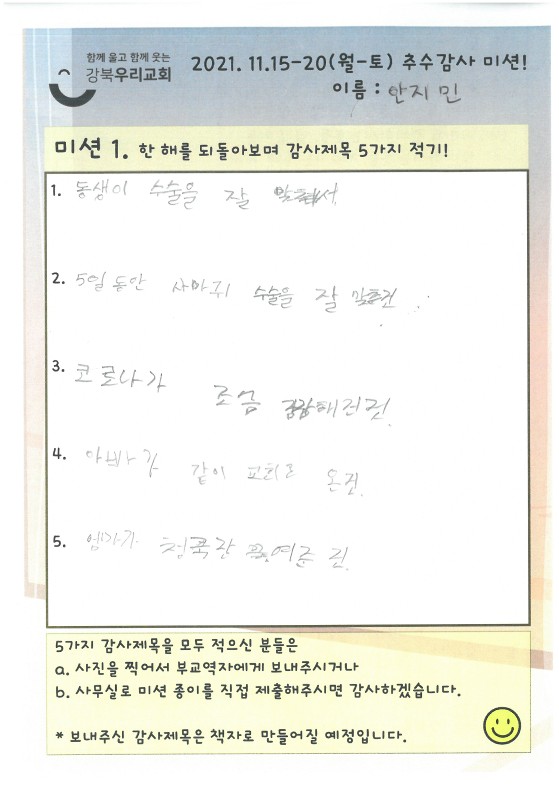 함께 울고 함께 웃는
강북우리교회
2021. 11.15-20(월-토) 추수감사 미션!
이름 : 안지민
미션 1. 한 해를 되돌아보며 감사제목 5가지 적기!
1. 동생이 수술을 잘
2. 5일 동안 사마귀 수술을 잘
3. 코로나가 조금
4. 아빠가 같이 교회로 온건.
5. 엄마가
5가지 감사제목을 모두 적으신 분들은
a. 사진을 찍어서 부교역자에게 보내주시거나
b. 사무실로 미션 종이를 직접 제출해주시면 감사하겠습니다.
* 보내주신 감사제목은 책자로 만들어질 예정입니다.